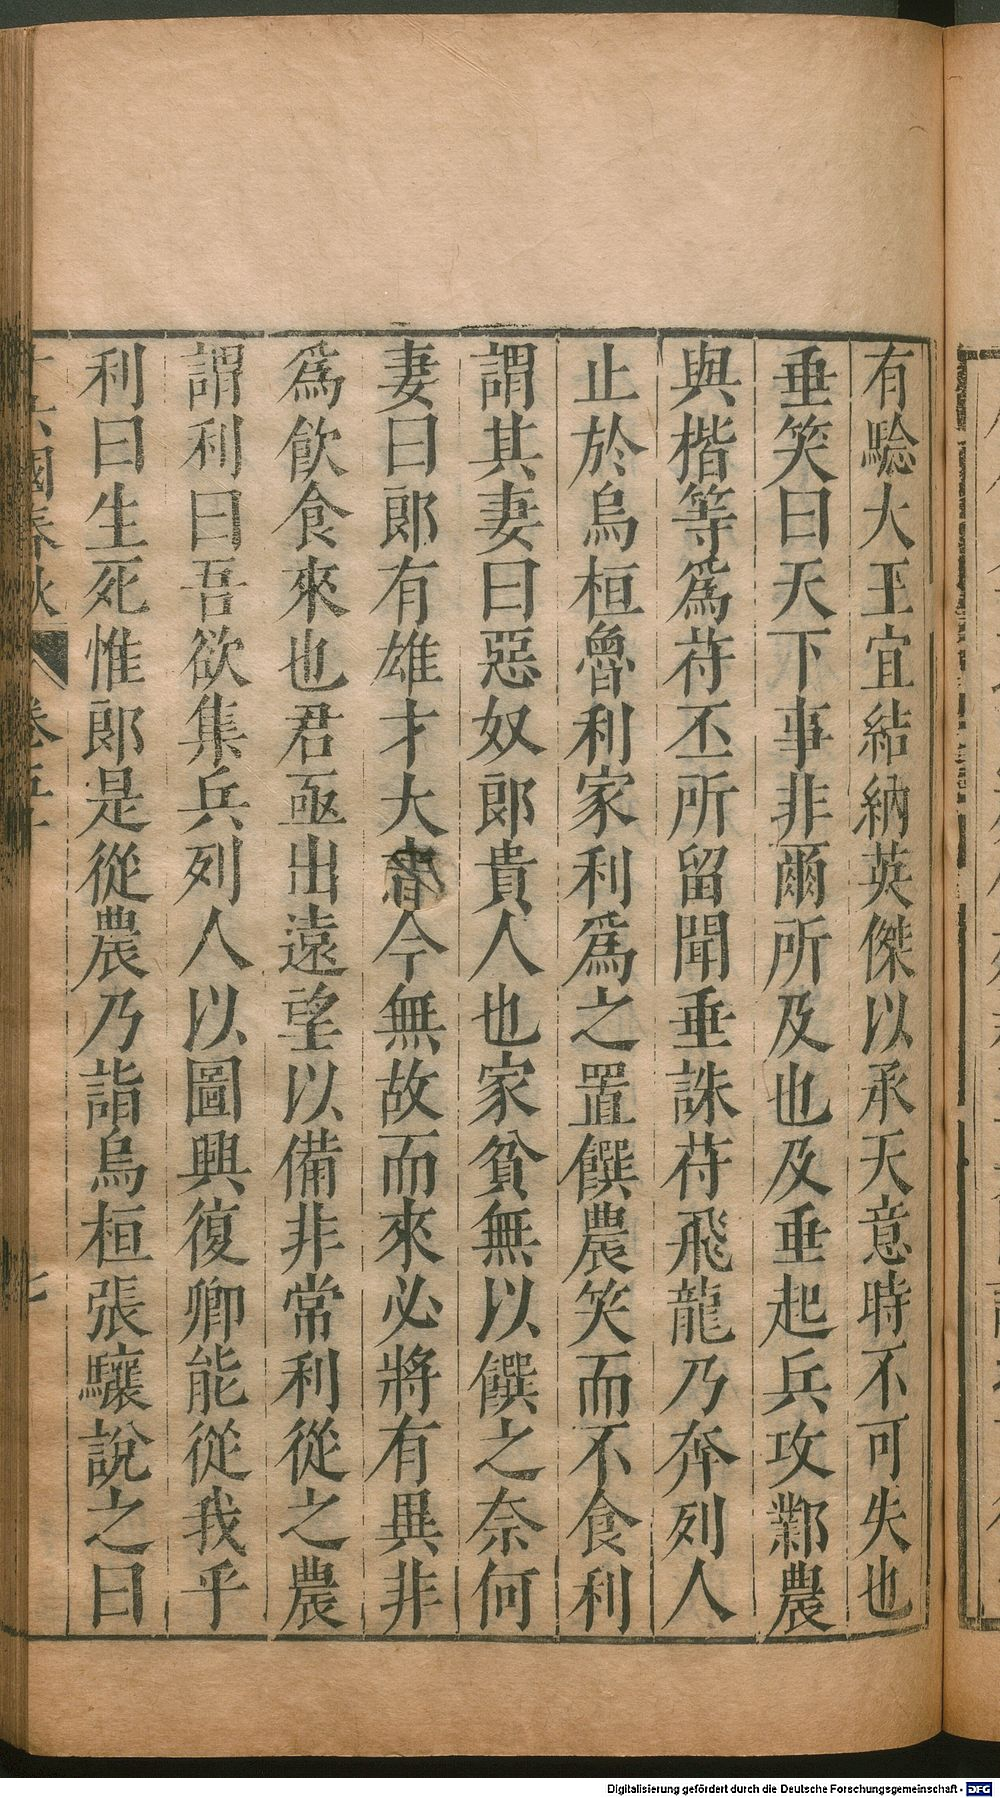 有驗大王宜結納英傑以承天意時不可失也
垂笑曰天下事非爾所及也及垂起兵攻鄴農
與楷等爲苻丕所留聞垂誅苻飛龍乃奔列人
止於烏桓魯利家利爲之置饌農笑而不食利
謂其妻曰惡奴郎貴人也家貧無以饌之奈何
妻曰郎有雄才大今無故而來必將有異非
爲飲食來也君亟出遠望以備非常利從之農
謂利曰吾欲集兵列人以圖興復卿能從我乎
利曰生死惟郎是從農乃詣烏桓張驤說之曰
六國春秋 卷五十 七
Digitalisierung gefördert durch die Deutsche Forschungsgemeinschaft - DFG